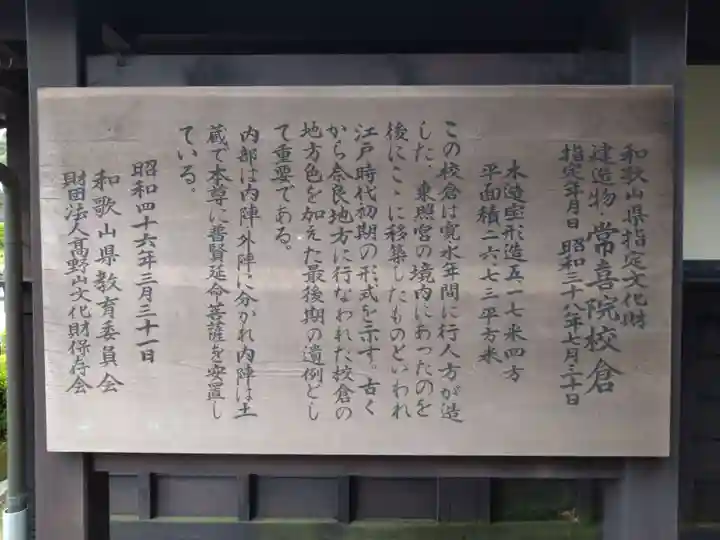 和歌山県指定文化財
建造物・常喜院校倉
指定年月日 昭和三十八年七月三十日
木造宝形造五、一七米四方
平面積二六、七三平方米
この校倉は寛永年間に行人方が造
した、東照宮の境内にあったのを
後にここに移築したものといわれ
江戸時代初期の形式を示す。古く
から奈良地方に行なわれた校倉の
地方色を加えた最後期の遺例とし
て重要である。
内部は内陣・外陣に分かれ内陣は土
蔵で本尊に普賢延命菩薩を安置し
ている。
昭和四十六年三月三十一日
和歌山県教育委員会
財団法人高野山文化財保存会